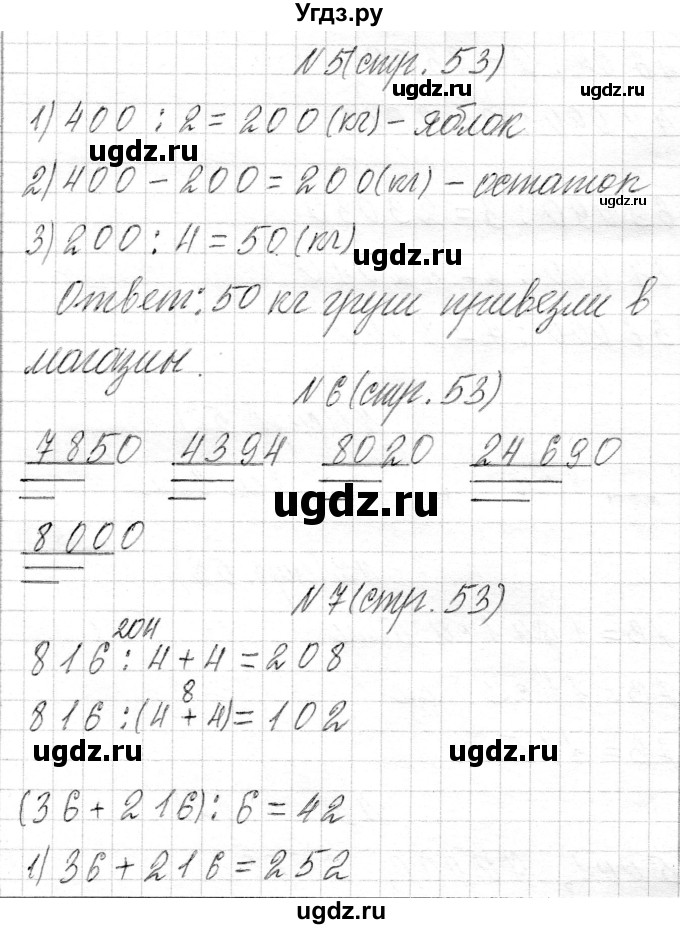 Угдз.ру
N5(стр. 53)
ugdz.ru
1) 400 : 2 = 200 (кг) – яблок
ugdz.ru
2) 400 – 200 = 200 (кг) – остаток
ugdz.ru
3) 200 : 4 = 50 (кг)
ugdz.ru
Ответ: 50 кг груш привезли в
магазин.
N6(стр. 53)
ugdz.ru
7850 4394 8020 24 690
ugdz.ru
8000
N7(стр. 53)
ugdz.ru
204
816 : 4 + 4 = 208
ugdz.ru
8
816 : (4 + 4) = 102
ugdz.ru ugdz.ru
(36 + 216) : 6 = 42
1) 36 + 216 = 252
ugdz.ru